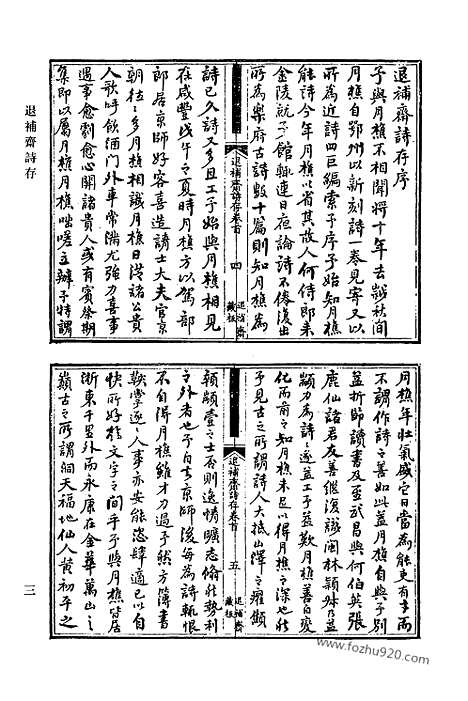 退補齋詩存序
予與月樵不相聞將十年去秋間
月樵自鄂州以新刻詩一卷見寄又以
爲近詩四巨編索予序予始知月樵
能詩今年月樵以省其故人何侍郎來
金陵就予館輒連日夜論詩不倦復出
所爲樂府古詩數十篇則知月樵爲
退補齋詩存卷首
四
退補齋
藏板
詩已久詩又多且工予始與月樵相見
在咸豐戊午之夏時月樵方以駕部
郎居京師好客喜造請士大夫官京
朝往往多月樵相識月樵日從諸公貴
人歌呼飲酒門外車常滿尤強力喜事
遇事愈劇愈心開諸貴人或有賓祭期
集即以屬月樵月樵咄嗟立辦予特謂
月樵年壯氣盛它日當爲能吏有事而
不謂作詩之善如此益月樵自與予別
益折節讀書及至武昌與何伯英張
鹿仙諸君友善繼復識閩林穎叔乃益
顓力爲詩遂益工予茲歎月樵善自變
化而前之知月樵未足以得月樵之深也然
予見古之所謂詩人大抵山澤之癯
退補齋詩存卷首
五
退補齋
藏板
顦顇壹之士否則逸情曠志脩然勢利
之外者也予自去京師後每爲詩輒恨
不自得月樵雖才力過予然方簿書
鞅掌逐逐人事亦安能恣肆適己以自
快所好於文字之間乎予與月樵皆居
浙東千里外而永康在金華萬山之
巔古之所謂洞天福地仙人黃初平之
退補齋詩存
三
www.fozhu920.com